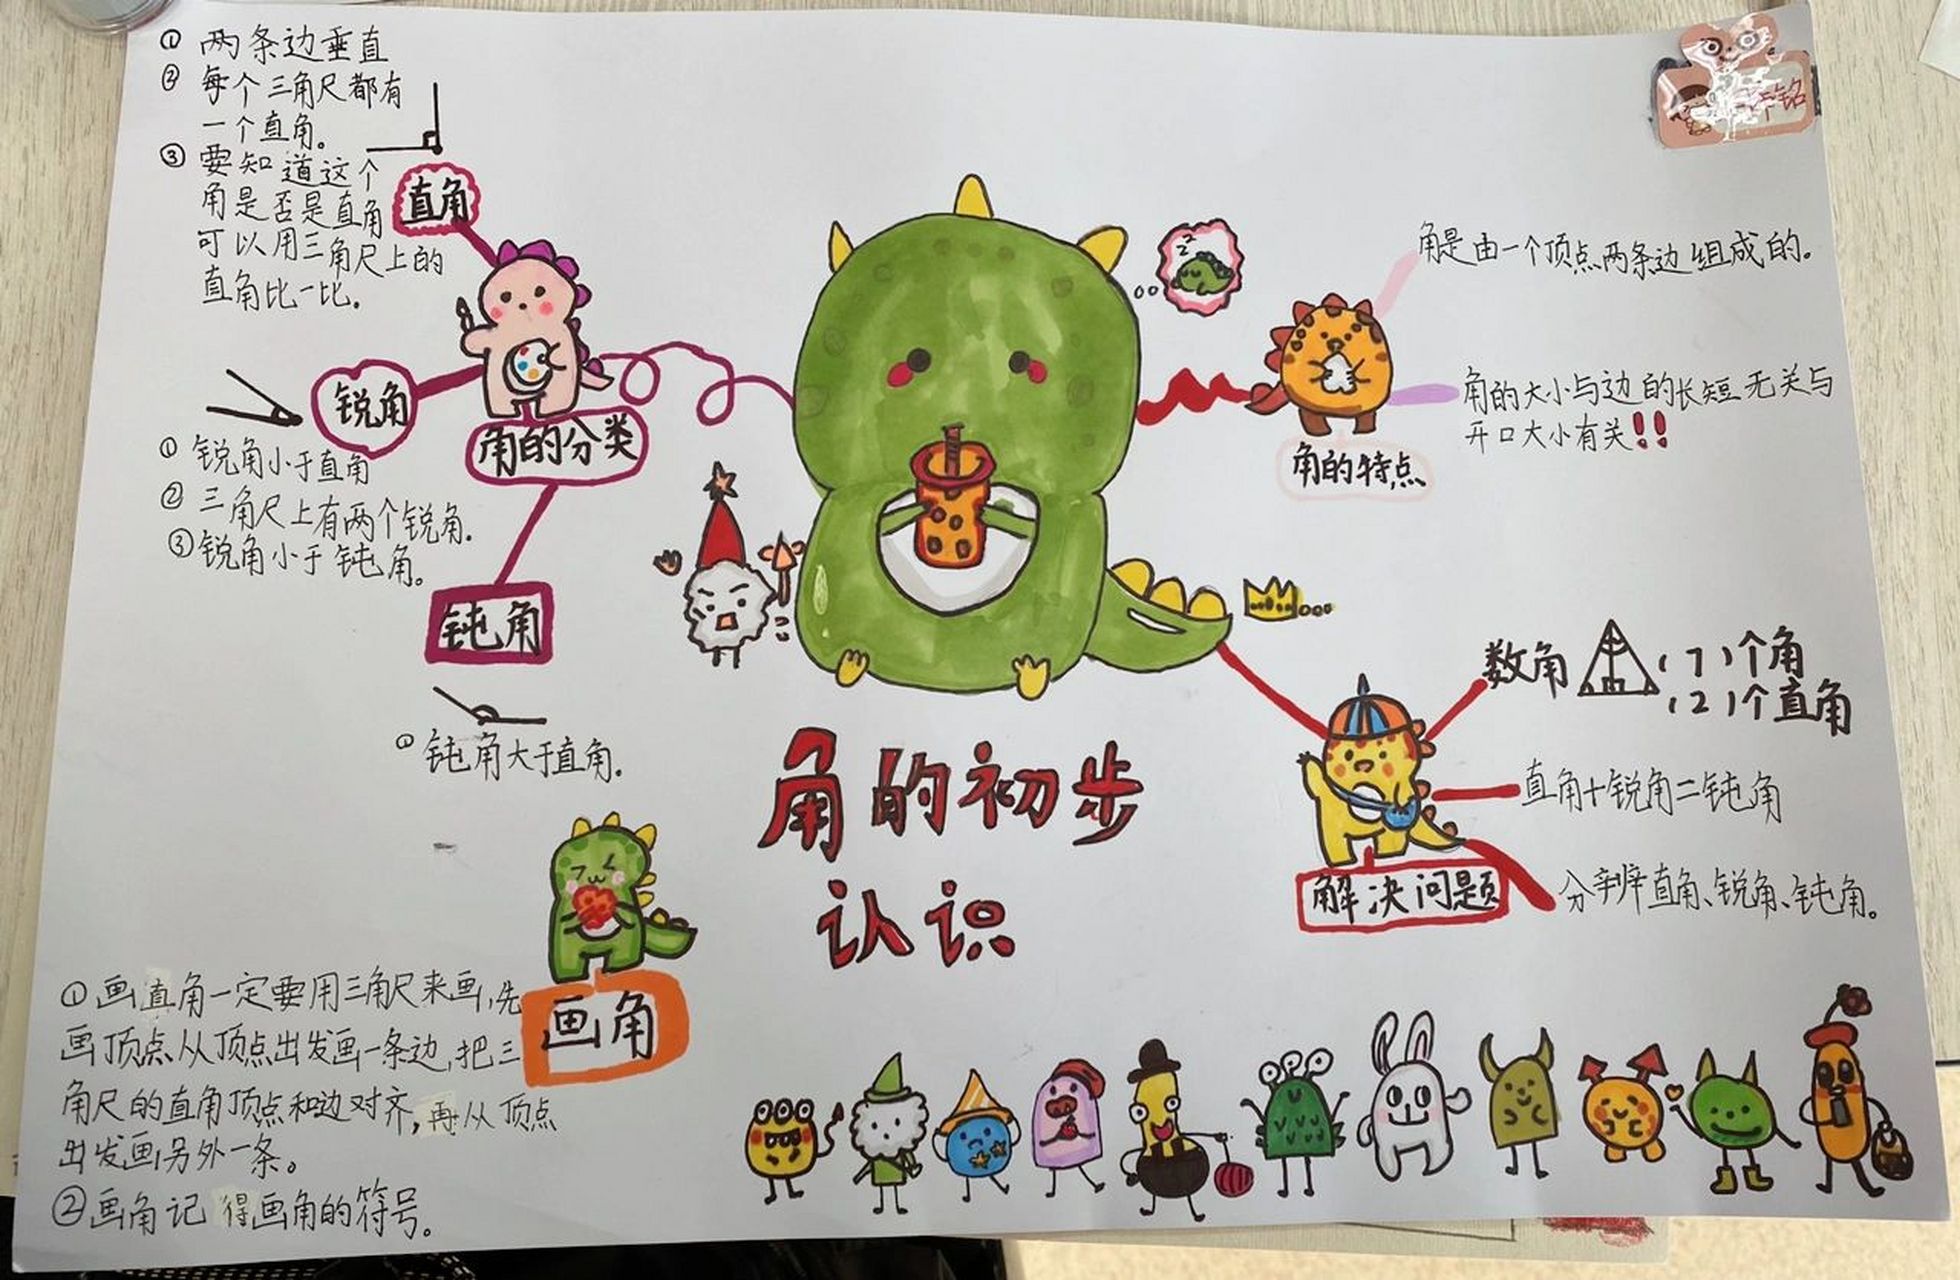 ① 两条边垂直
② 每个三角尺都有
一个直角。
③ 要知道这个
角是否是直角
可以用三角尺上的
直角比一比。
直角
锐角
① 锐角小于直角
② 三角尺上有两个锐角.
③ 锐角小于钝角。
角的分类
钝角
① 钝角大于直角.
角是由一个顶点两条边组成的。
角的大小与边的长短无关与
开口大小有关!!
角的特点
数角 (7)个角
(2)个直角
直角+锐角=钝角
分辨直角、锐角、钝角。
解决问题
角的初步
认识
画角
①画直角一定要用三角尺来画,先
画顶点从顶点出发画一条边,把三
角尺的直角顶点和边对齐,再从顶点
出发画另外一条。
②画角记得画角的符号。